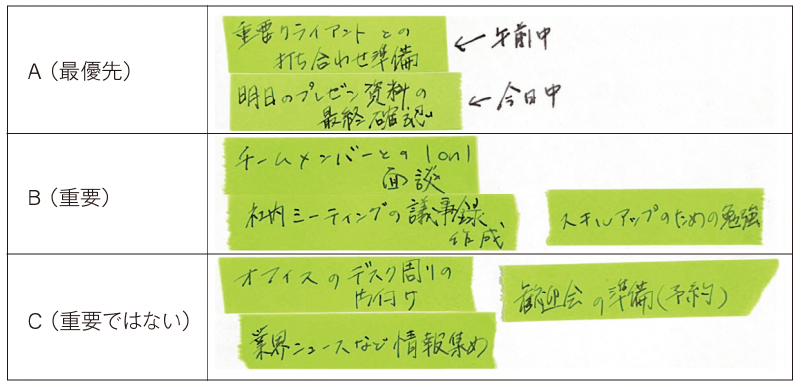 A（最優先）
重要クライアントとの
打ち合わせ準備
←午前中
明日のプレゼン資料の
最終確認
←今日中
B（重要）
チームメンバーとの1on1
面談
社内ミーティングの議事録
作成
スキルアップのための勉強
C（重要ではない）
オフィスのデスク周りの
片付け
歓迎会の準備(予約)
業界ニュースなど情報集め